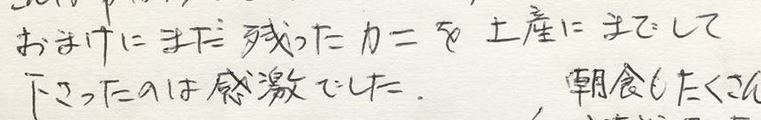 おまけにまだ残ったカニを土産にまでして
下さったのは感激でした. 朝食もたくさん